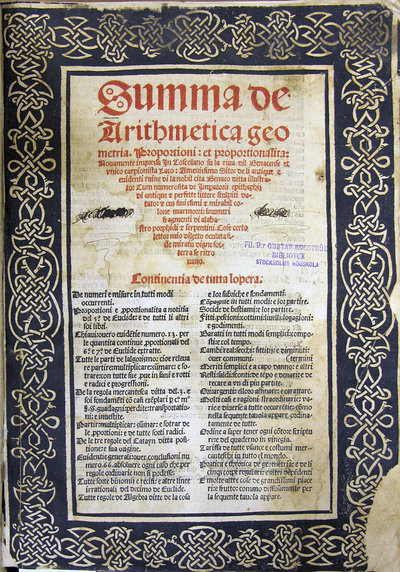 Summa de
Arithmetica geo
metria. Proportioni: et proportionalita:
Nouamente impressa In Toscolano su la riua dil Benacense et
vnico carpionista Laco: Amenissimo Sito: de li antique et
euidenti ruine di la nobil cita Benaco ditta illustra
to: Cum numerosita de Imperatorij epithaphij
di antique et perfette littere sculpiti do
tato: et cum finissimi et mirabil co
lone marmorei: inumeri
fragmenti di alaba
stro porphidi et serpentini. Cose certo
lettor mio diletto oculata fi
de miratu digne sot
terra se ritro
uano.
Fil. D:r
BIBLIOTEK
STOCKHOLMS HÖGSKOLA
Continentia de tutta lopera.
De numeri e misure in tutti modi
occurrenti.
Proportioni e pportionalita a notitia
del .5. de Euclide e de tutti li altri
soi libri.
Chiaui ouero euidentie numero .13. per
le quantita continue pportionali del
.6. e .7. de Euclide extratte.
Tutte le parti de lalgorismo: cioe releua
re partir multiplicar summare e so-
trare con tutte sue pue in sani e rotti
e radici e progressioni.
De la regola mercantesca ditta del .3. e
soi fondamenti con casi
guadagni: perdite: transportatio-
ni: e inuestite.
Partir multiplicar: summar e sotrar de
le pportioni: e de tutte sorti radici.
De le tre regole del Catayn ditta posi
tione: e sua origine.
Euidentie generali ouer conclusioni nu
mero .66. absoluere ogni caso che per
regole ordinarie non si podesse.
Tutte sorte binomii e recisi e altre linee
irrationali del decimo de Euclide.
Tutte regole de Algebra ditte de la cosa
e lor fabriche e fondamenti.
Compagnie in tutti modi e lor partire.
Socide de bestiami: e lor partire.
Fitti: pesciōi: cottimi: liuelli: logagioni:
e godimenti.
Baratti in tutti modi semplici: compo-
sti: e col tempo.
Cambi reali: secchi: fittitii: e diminuti:
ouer communi.
Meriti semplici e a capo danno: e altri termini
Resti: saldi: sconti: de tēpo e denari e de
recare a vn di piu partite.
Ori e argenti: e lloro affinare: e carattare.
Molti casi e ragioni straordinarie: va-
rie e diuerse a tutte occurrētie: como
nella sequente tauola appare ordinata-
mente de tutte.
Ordine a saper tener ogni conto e scriptu
re e del quaderno in vinegia.
Tariffa de tutte vsance e costumi mer-
canteschi in tutto el mondo.
Pratica e theorica de geometria: e de li
cinqui corpi regulari: e altri dependenti
E molte altre cose de grandissimi piace
ri e frutto: commo diffusamente per
la sequente tauola appare.